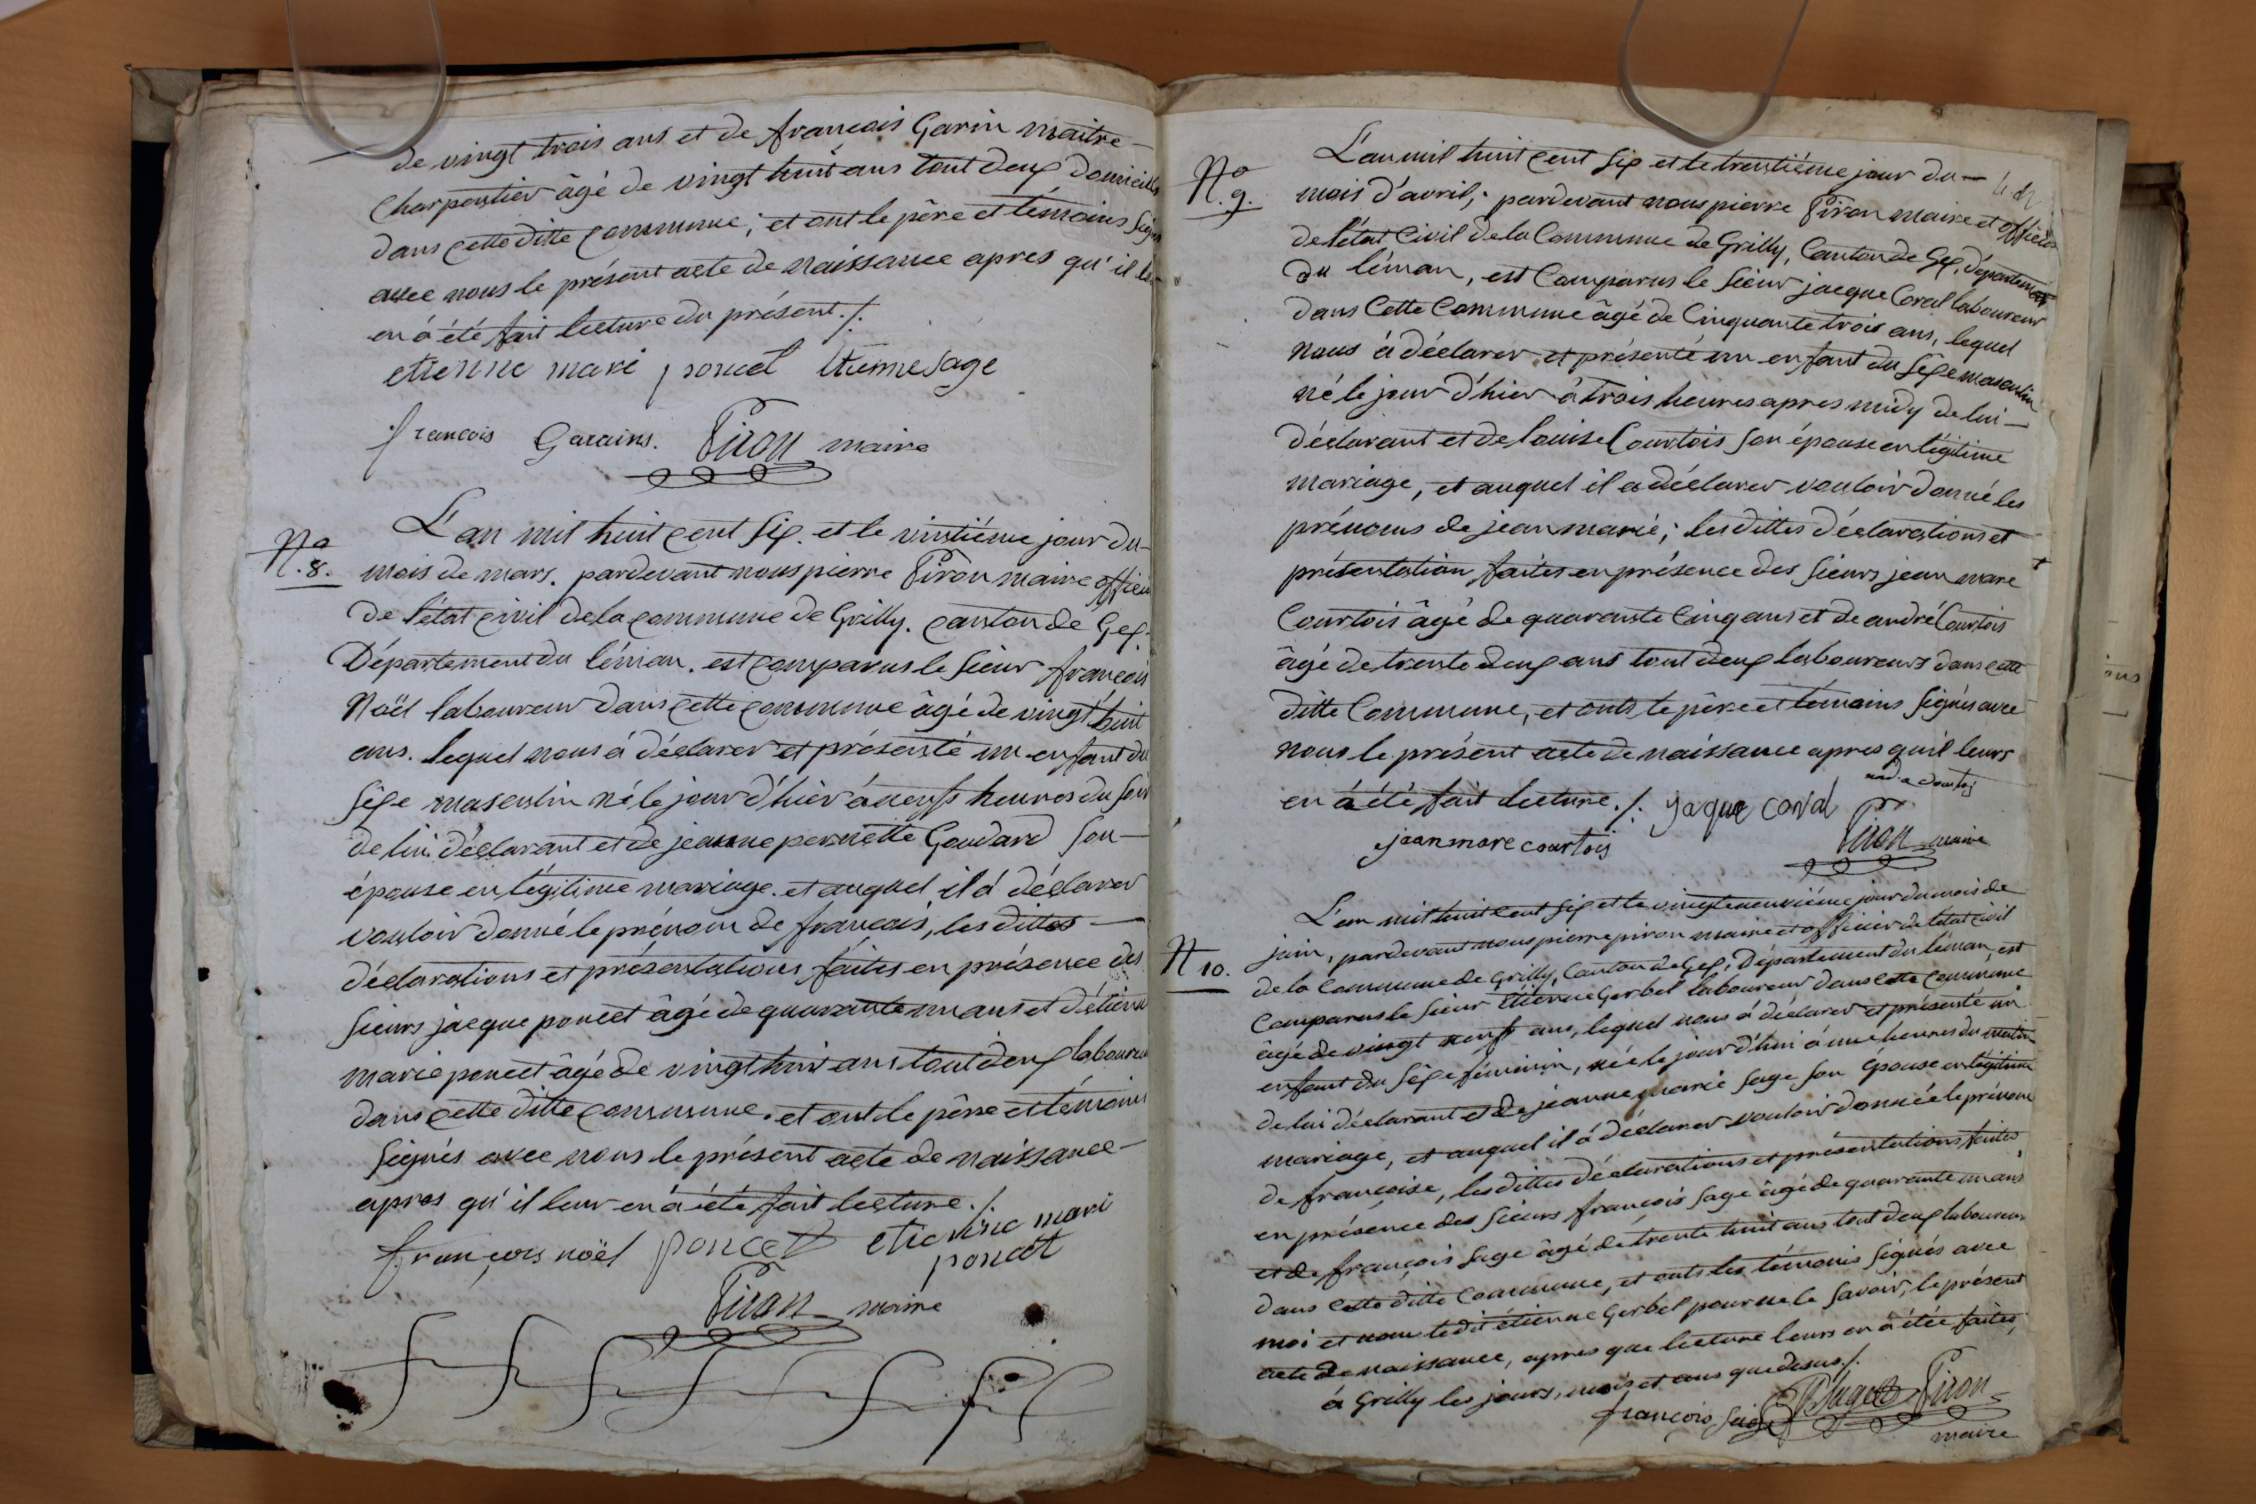 de vingt trois ans et de françois Garin maitre
Charpentier âgé de vingt huit ans tout deux domiciellé
dans cette ditte commune; et ont le père et témoins signé
avec nous le présent acte de naissance apres qu'il leur
en à été fait lecture du présent./.
etienne mari poncet Etienne Sage
francois Garains. Piron maire
No
N. 8.
L'an mil huit cent six. et le vintiéme jour du
mois de mars. pardevant nous pierre Piron maire officier
de l'état civil de la commune de Grilly. canton de Gex.
Département du léman. est comparus le sieur françois
Noël laboureur dans cette commune âgé de vingt huit
ans. lequel nous à déclarer et présenté un enfant du
séxe masculin né le jour d'hier à neufs heures du soir
de lui déclarant et de jeanne pernette Goudard son
épouse en légitime mariage. et auquel il à déclarer
vouloir donné le prénom de francois, les dittes
déclarations et présentations faites en présence des
sieurs jacque poncet âgé de quarante un ans et d'étienne
marie poncet âgé de vingt huit ans tout deux laboureur
dans cette ditte commune. et ont le père et témoins
signés avec nous le présent acte de naissance
apres qu'il leur en à été fait lecture./.
françois noël poncet etienne mari
poncet
Piron maire
No
N. 9.
L'an mil huit cent six et le trentiéme jour du
mois d'avril; pardevant nous pierre Piron maire et officier
de l'état Civil de la Commune de Grilly, Canton de Gex, département
du léman, est Comparus le sieur jacque Coral laboureur
dans Cette Commune âgé de Cinquante trois ans, lequel
nous à déclarer et présenté un enfant du séxe masculin
né le jour d'hier à trois heures apres midy de lui
déclarant et de louise Courtois son épouse en légitime
mariage, et auquel il a déclarer vouloir donné les
prénoms de jean marie; les dittes déclarations et
présentation faites en présence des sieurs jean marc
Courtois âgé de quarante Cinq ans et de andré Courtois
âgé de trente deux ans tout deux laboureurs dans cette
ditte Commune, et onts le père et témoins signés avec
nous le présent acte de naissance apres qu'il leurs
en à été fait lecture./. jaque coral
jean marc courtois Piron maire
N 10.
L'an mil huit cent six et le vingt neuviéme jour du mois de
juin, pardevant nous pierre piron maire et officier de l'état civil
de la Commune de Grilly, Canton de Gex, Département du léman, est
Comparus le sieur Etienne Gerbel laboureur dans cette commune
âgé de vingt neufs ans, lequel nous à déclarer et présenté un
enfant du séxe féminin, née le jour d'hui à une heures du matin
de lui déclarant et de jeanne marie sage son épouse en légitime
mariage, et auquel il à déclarer vouloir donnée le prénom
de françoise, les dittes déclarations et présentations faites
en présence des sieurs françois sage âgé de quarante un ans
et de françois sage âgé de trente huit ans tout deux laboureur
dans cette ditte commune, et onts les témoins signés avec
moi et non ledit étienne Gerbel pour ne le savoir, le présent
acte de naissance, apres que lecture leurs en à étée faites,
à Grilly les jours, mois et ans que desus./.
françois Piron
maire